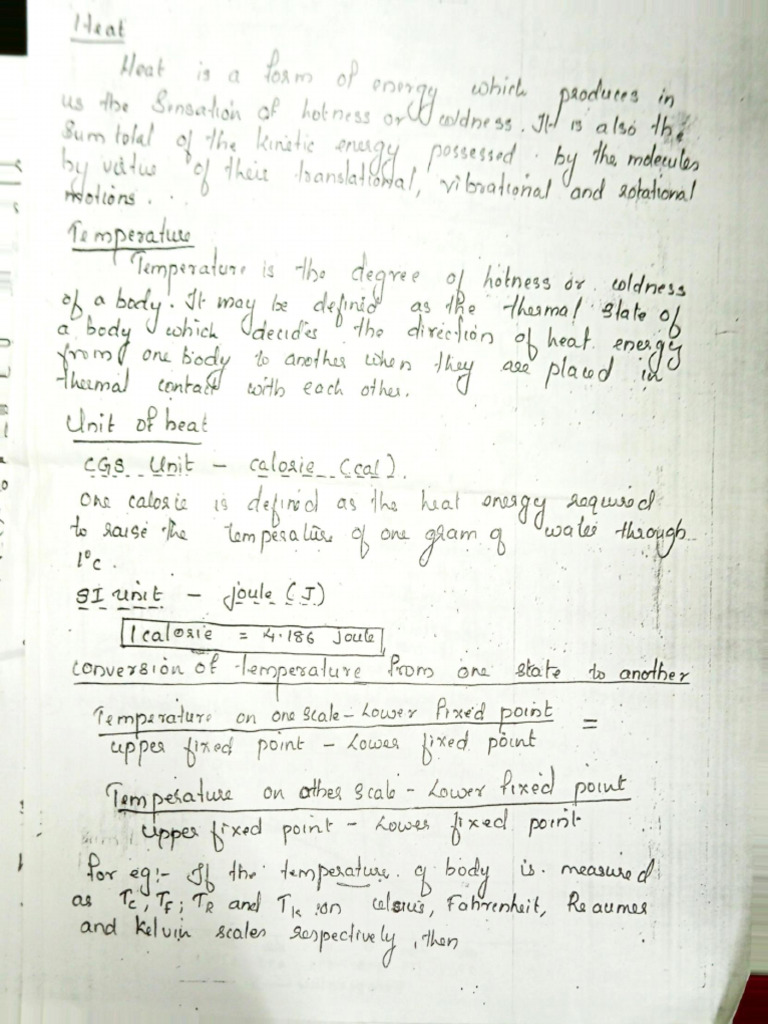 Heat
Heat is a form of energy which produces in
us the Sensation of hotness or coldness. It is also the
Sum total of the kinetic energy possessed by the molecules
by virtue of their translational, vibrational and rotational
motions.
Temperature
Temperature is the degree of hotness or coldness
of a body. It may be defined as the thermal state of
a body which decides the direction of heat energy
from one body to another when they are placed in
thermal contact with each other.
Unit of heat
CGS Unit - calorie (cal).
One calorie is defined as the heat energy required
to raise the temperature of one gram of water through
1°c.
SI unit - joule (J)
1 calorie = 4.186 joule
conversion of temperature from one state to another
Temperature on one scale - Lower fixed point
=
upper fixed point - Lower fixed point
Temperature on other scale - Lower fixed point
upper fixed point - Lower fixed point
for eg:- If the temperature of body is measured
as Tc, TF, TR and TK on celsius, Fahrenheit, Reaumer
and kelvin scales respectively, then